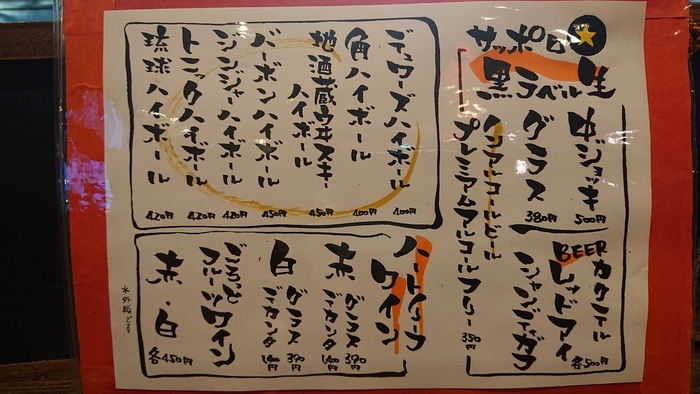 サッポロ
黒ラベル 生
中ジョッキ 500円
グラス 380円
ノンアルコールビール
プレミアムアルコールフリー 350円
BEERカクテル
レッドアイ
シャンディガフ
各500円
デュワーズハイボール 400円
角ハイボール 400円
地酒蔵ウヰスキー
ハイボール 450円
バーボンハイボール 450円
ジンジャーハイボール 420円
トニックハイボール 420円
琉球ハイボール 420円
ハートランド
ワイン
赤 グラス 390円
デカンタ 1,400円
白 グラス 390円
デカンタ 1,400円
ごろっと
フルーツワイン
赤・白 各450円